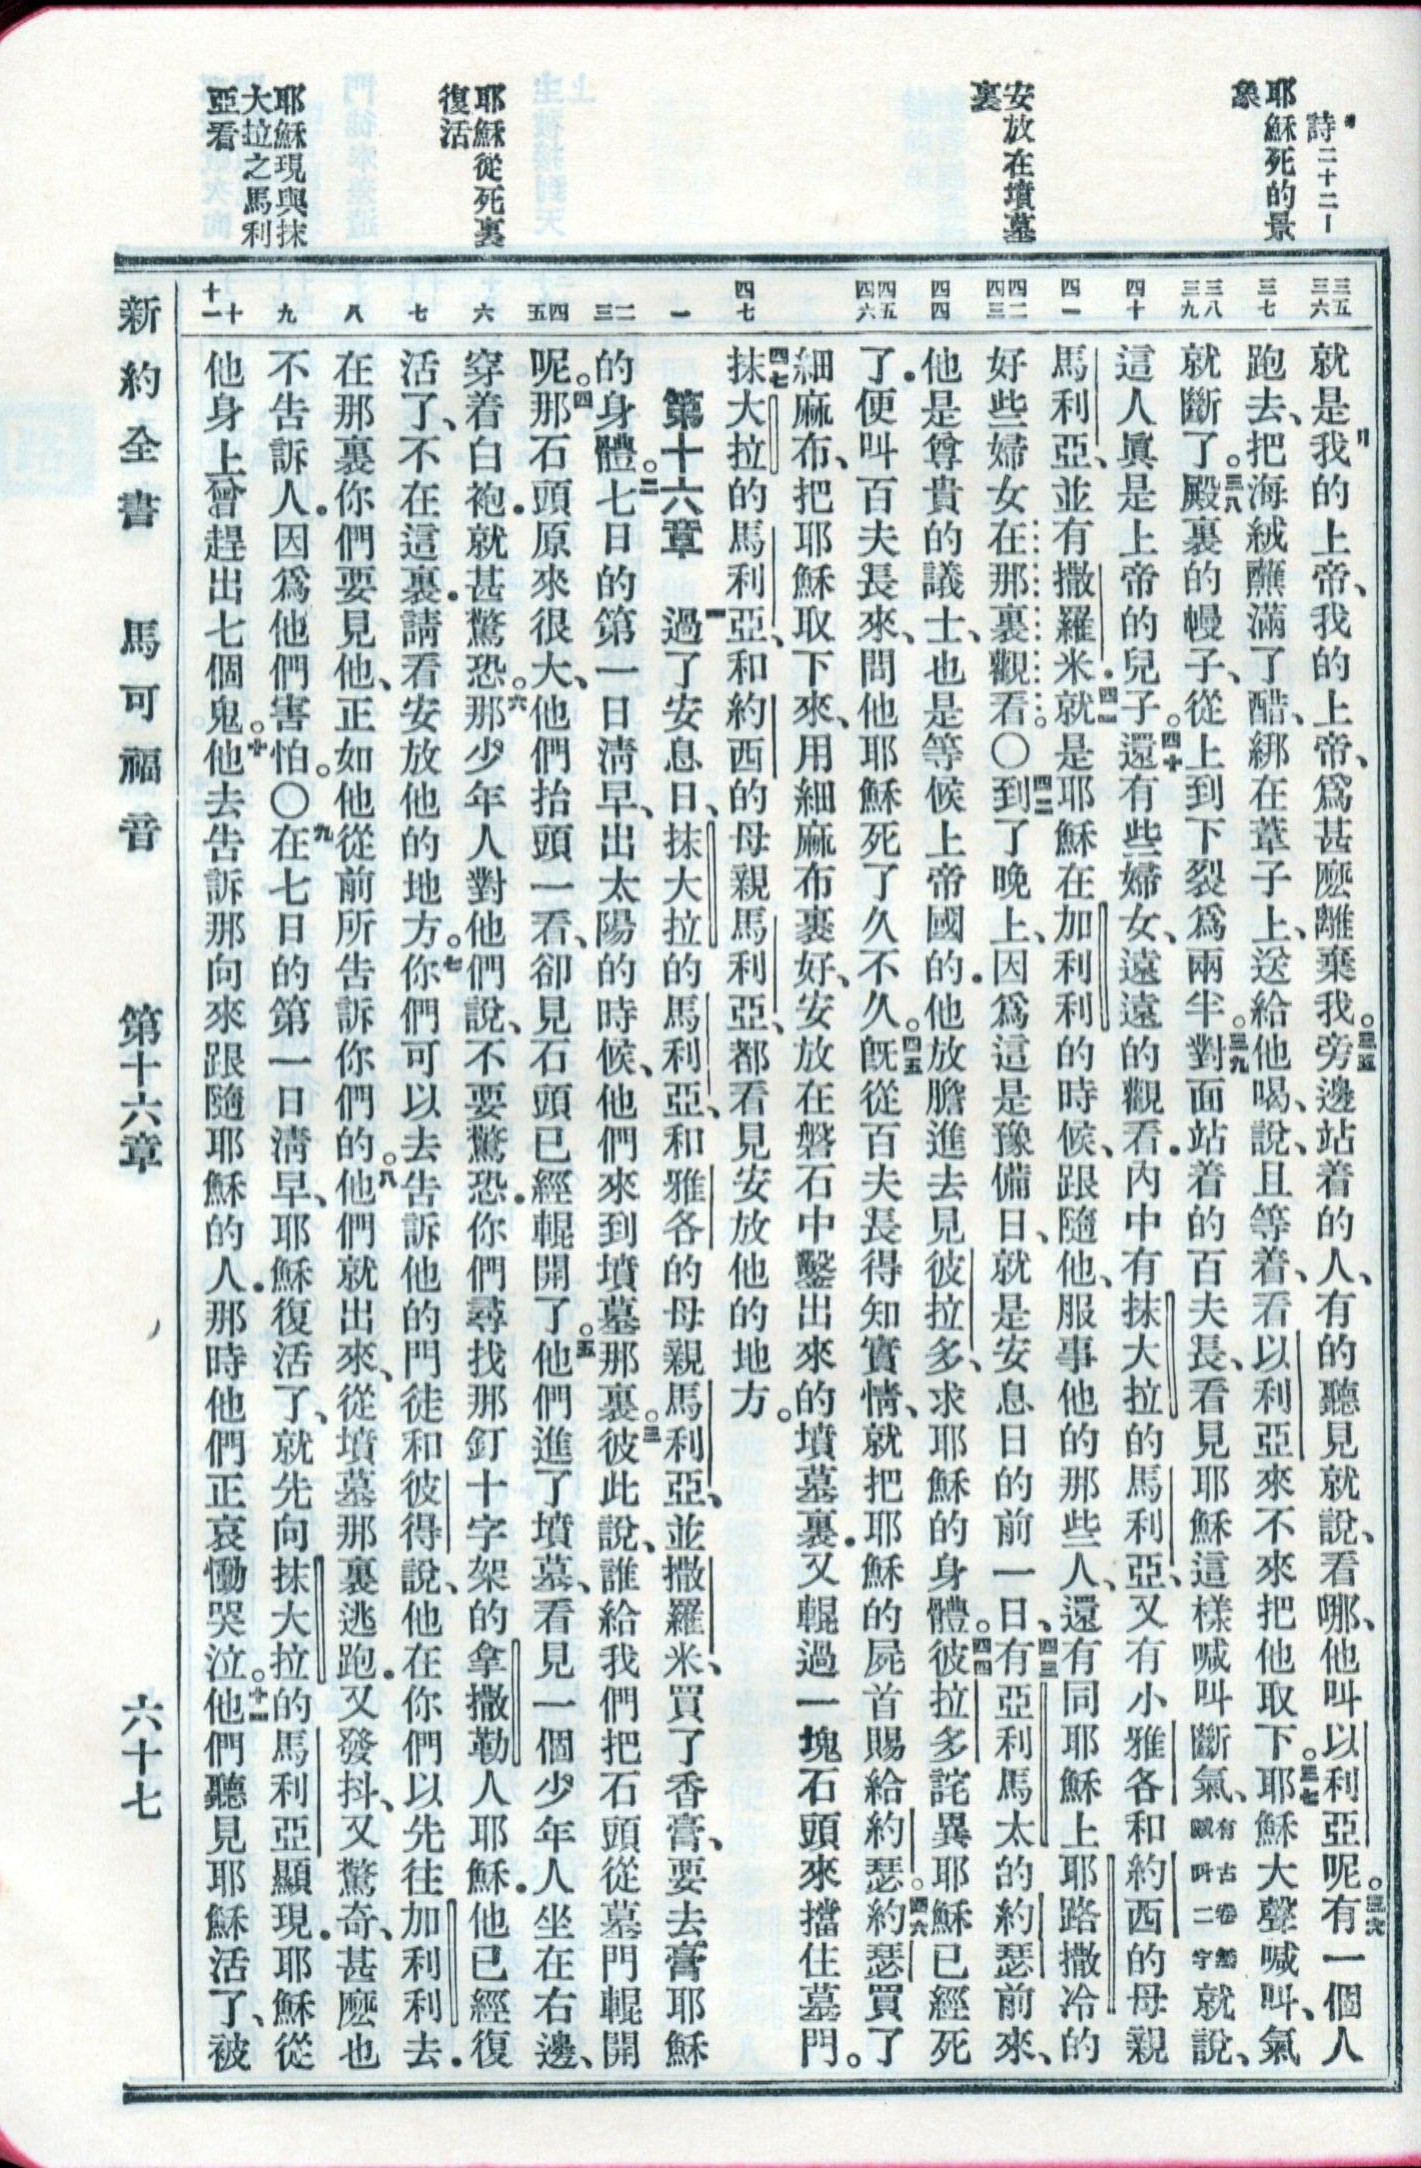 詩二十二1
耶穌死的景
象
安放在墳墓
裏
耶穌從死裏
復活
耶穌現與抹
大拉之馬利
亞看
三五
三六
三七
三八
三九
四十
四一
四二
四三
四四
四五
四六
四七
一
二
三
四
五
六
七
八
九
十
十一
就是我的上帝、我的上帝、爲甚麽離棄我。三五旁邊站着的人、有的聽見就說、看哪、他叫以利亞呢。三六有一個人
跑去、把海絨蘸滿了醋、綁在葦子上、送給他喝、說、且等着、看以利亞來不來把他取下。三七耶穌大聲喊叫、氣
就斷了。三八殿裏的幔子、從上到下裂爲兩半。三九對面站着的百夫長、看見耶穌這樣喊叫斷氣、有古卷無喊叫二字就說、
這人眞是上帝的兒子。四十還有些婦女、遠遠的觀看．內中有抹大拉的馬利亞、又有小雅各和約西的母親
馬利亞、並有撒羅米．四一就是耶穌在加利利的時候、跟隨他、服事他的那些人、還有同耶穌上耶路撒冷的
好些婦女在那裏觀看。〇四二到了晚上、因爲這是豫備日、就是安息日的前一日、四三有亞利馬太的約瑟前來、
他是尊貴的議士、也是等候上帝國的．他放膽進去見彼拉多、求耶穌的身體。四四彼拉多詫異耶穌已經死
了．便叫百夫長來、問他耶穌死了久不久。四五旣從百夫長得知實情、就把耶穌的屍首賜給約瑟。四六約瑟買了
細麻布、把耶穌取下來、用細麻布裹好、安放在磐石中鑿出來的墳墓裏．又輥過一塊石頭來擋住墓門。
四七抹大拉的馬利亞、和約西的母親馬利亞、都看見安放他的地方。
第十六章 一過了安息日、抹大拉的馬利亞、和雅各的母親馬利亞、並撒羅米、買了香膏、要去膏耶穌
的身體。二七日的第一日淸早、出太陽的時候、他們來到墳墓那裏。三彼此說、誰給我們把石頭從墓門輥開
呢。四那石頭原來很大、他們抬頭一看、卻見石頭已經輥開了。五他們進了墳墓、看見一個少年人坐在右邊、
穿着白袍．就甚驚恐。六那少年人對他們說、不要驚恐．你們尋找那釘十字架的拿撒勒人耶穌．他已經復
活了、不在這裏．請看安放他的地方。七你們可以去吿訴他的門徒和彼得說、他在你們以先往加利利去．
在那裏你們要見他、正如他從前所吿訴你們的。八他們就出來、從墳墓那裏逃跑．又發抖、又驚奇、甚麽也
不吿訴人．因爲他們害怕。〇九在七日的第一日淸早、耶穌復活了、就先向抹大拉的馬利亞顯現．耶穌從
他身上曾趕出七個鬼。十他去吿訴那向來跟隨耶穌的人．那時他們正哀慟哭泣。十一他們聽見耶穌活了、被
新約全書 馬可福音 第十六章 六十七